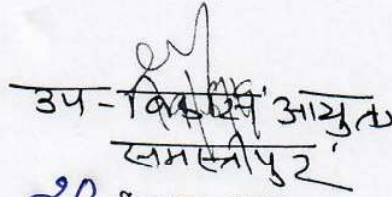 उप-विकास आयुक्त
समस्तीपुर